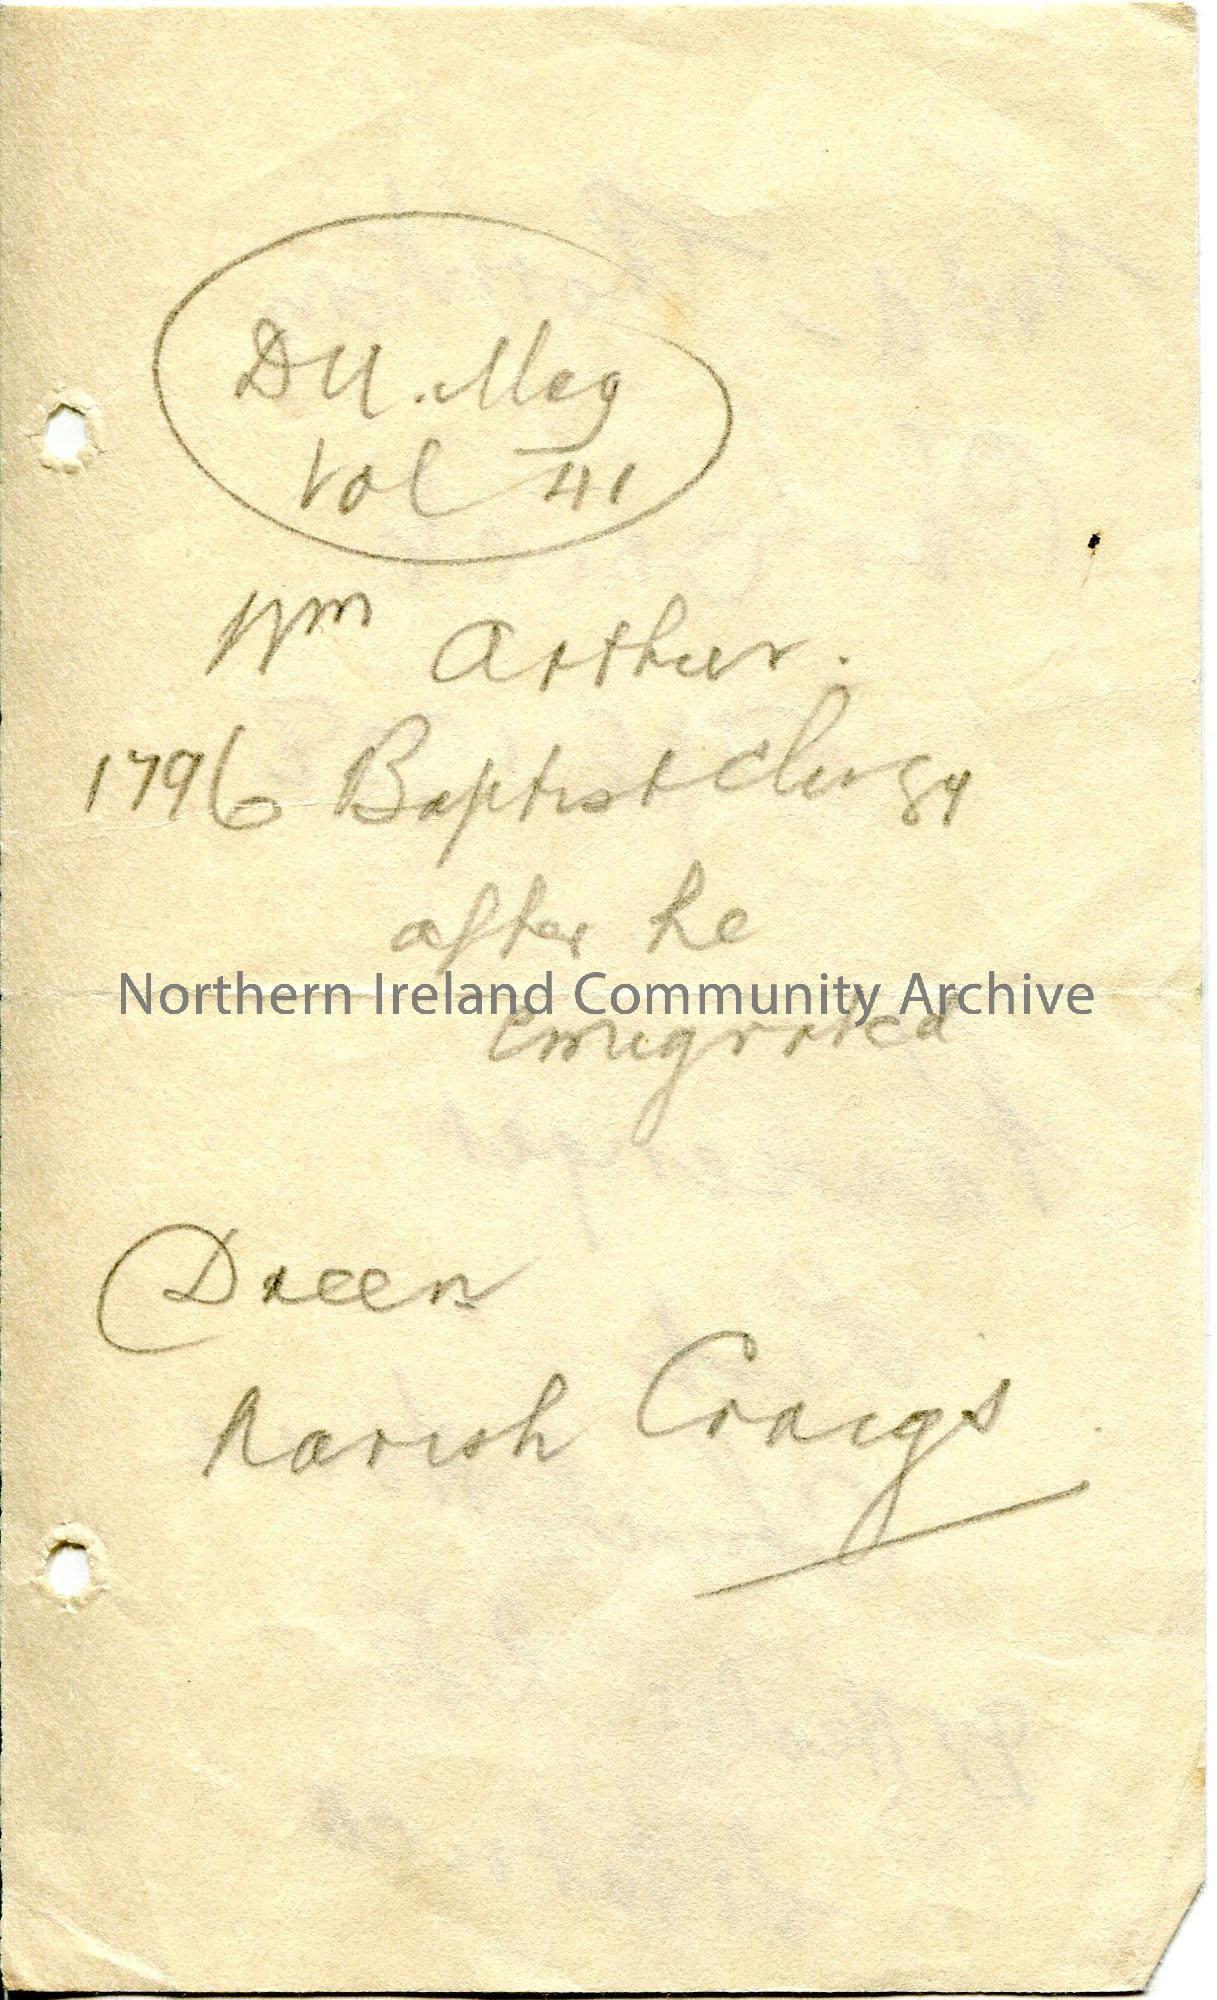 DU. Mag
Vol 41
Wm Arthur.
1796 Baptist clergy
after he
Northern Ireland Community Archive
emigrated
Dreen
Parish Craigs